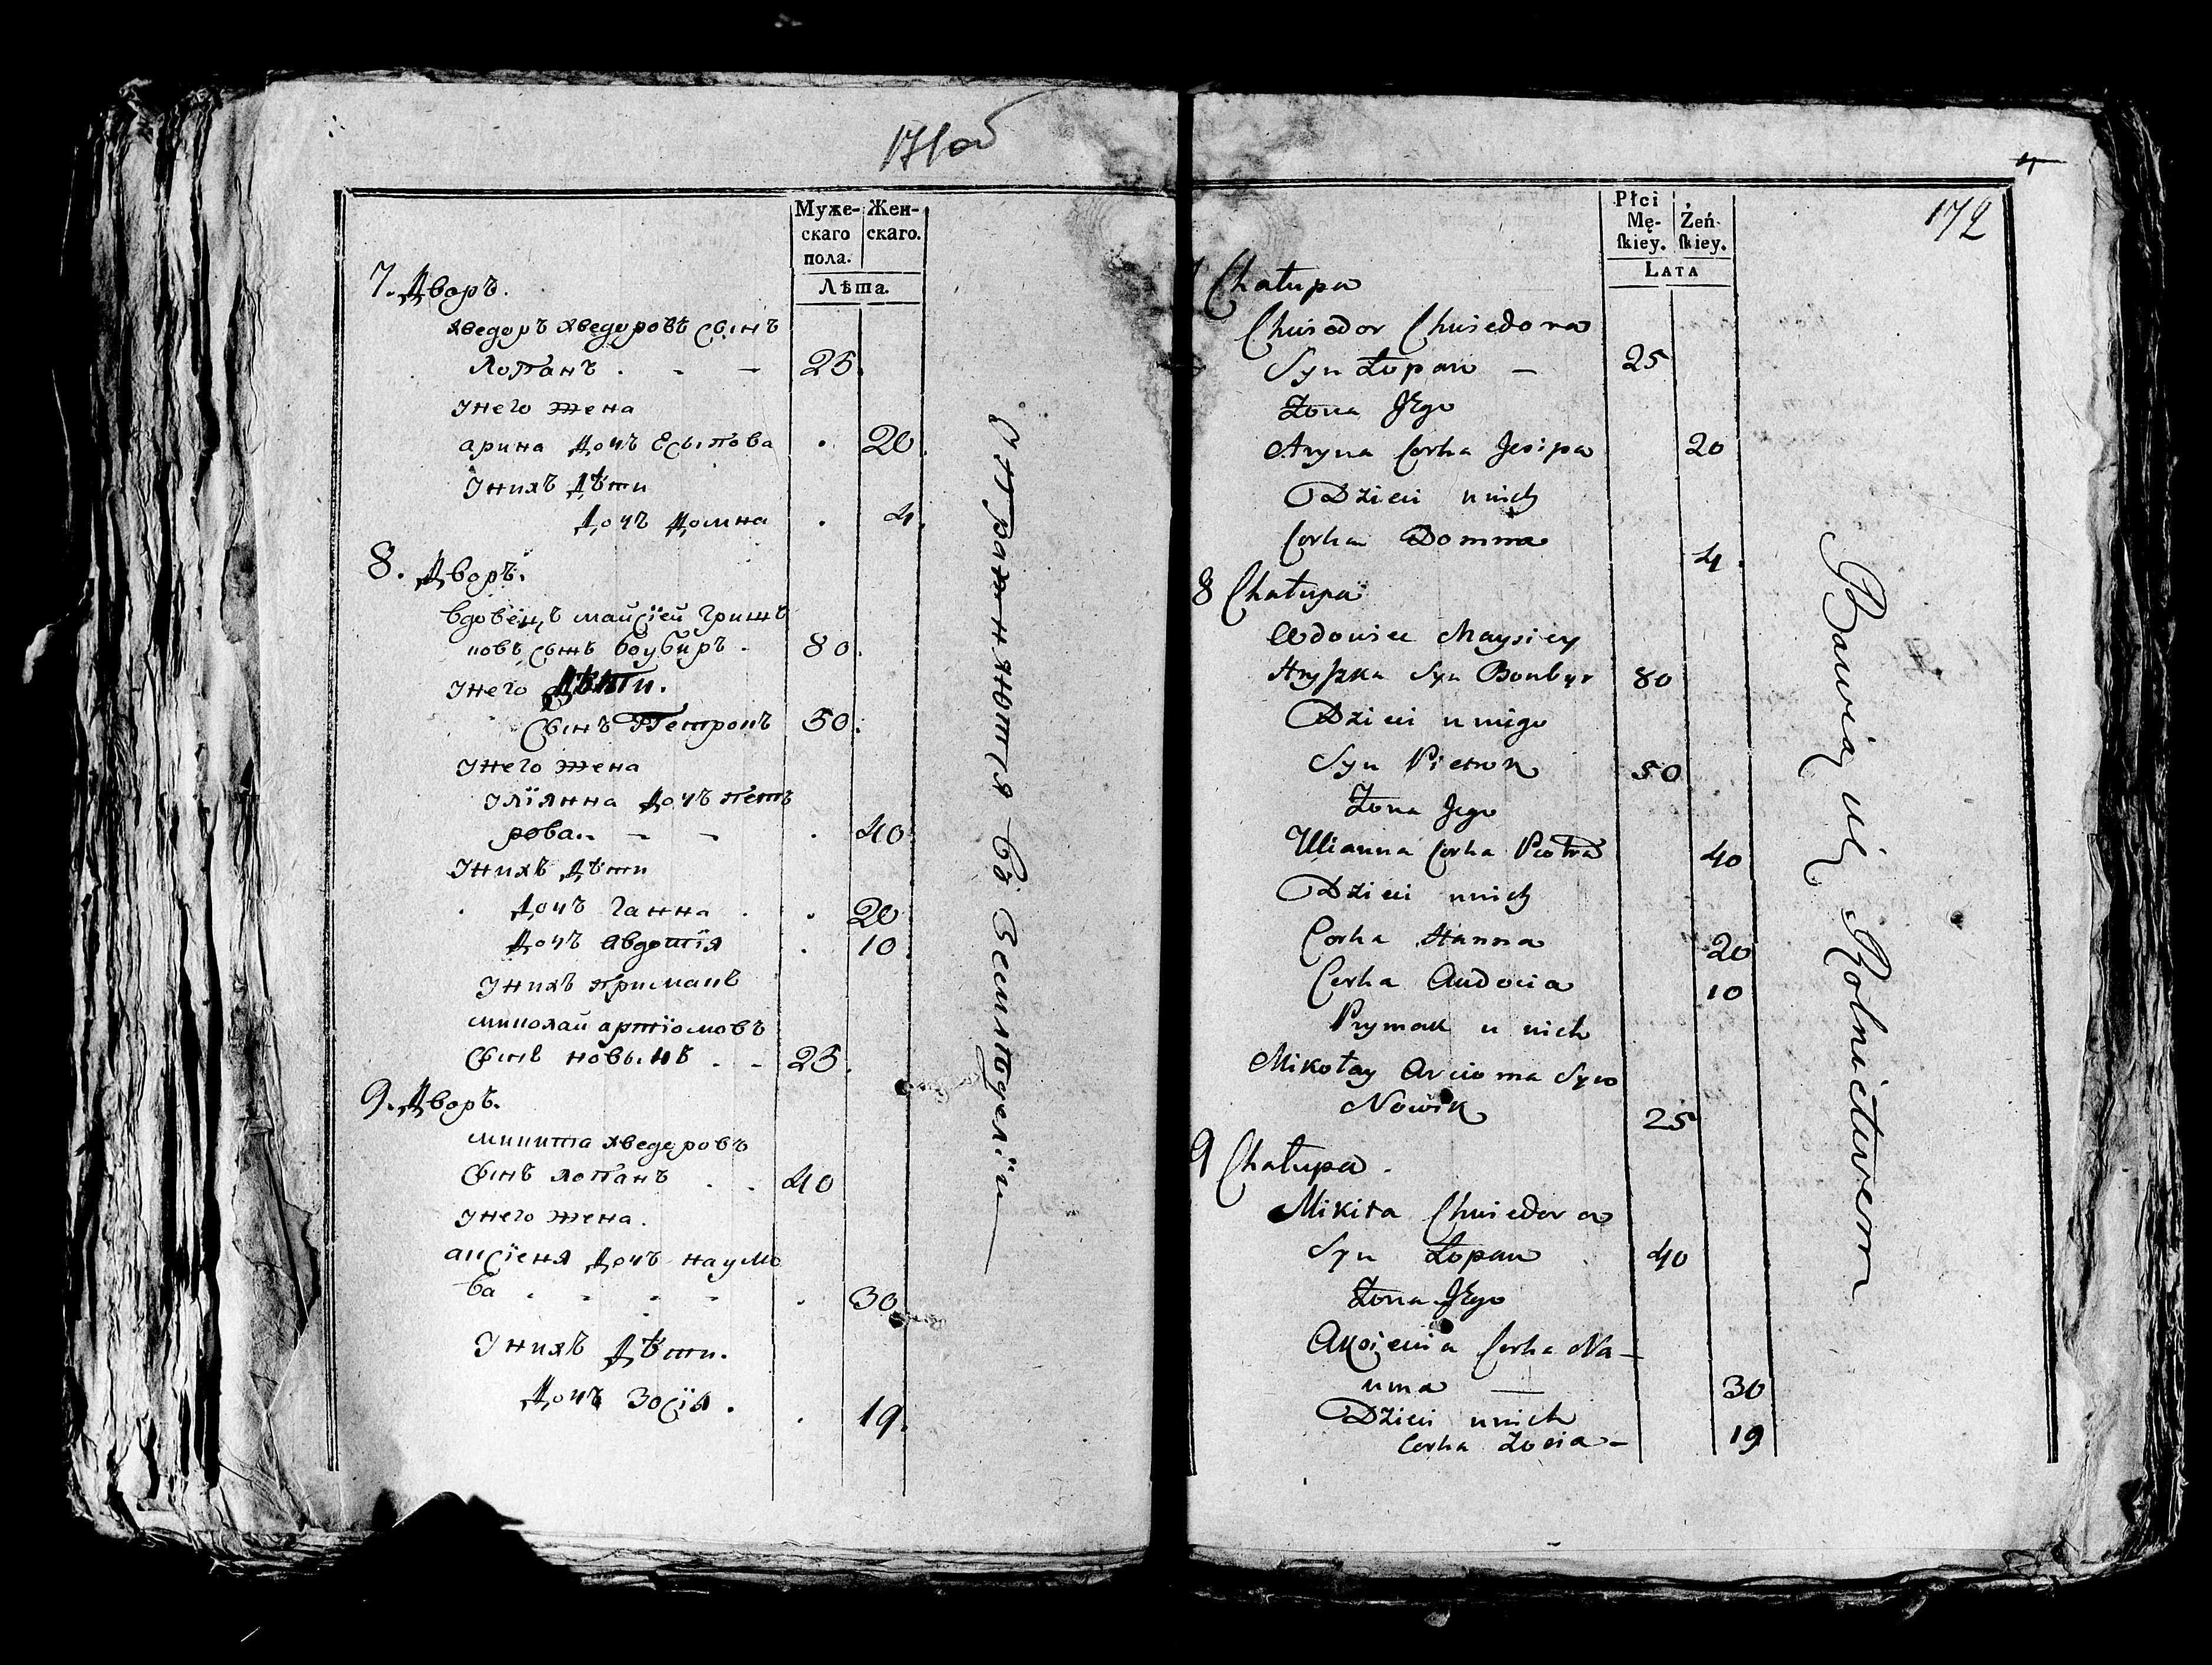 171об
Муже-
скаго
пола.
Жен-
скаго.
Лѣта.
7. Дворъ.
Хведоръ Хведоровъ сынъ
Лопанъ . - - 25.
Унего жена
арина Дочъ Есыпова . 20.
Унихъ Дѣти
Дочъ Домна . 4.
8. Дворъ.
вдовецъ майсїей гришъ
ковъ сынъ боубиръ . 80.
Унего Дѣти.
Сынъ Петрокъ 50.
Унего жена
Улїянна Дочъ петъ
рова.. - - . 40.
Унихъ Дѣти
. Дочъ ганна . . 20.
Дочъ авдотїя . 10.
Унихъ примакъ
миколай артїомовъ
сынъ новыкъ . - 25.
9. Дворъ.
микита хведоровъ
сынъ лопанъ . . 40
Унего жена.
аксїеня Дочъ наумо
ва . . . . . 30
Унихъ Дѣти.
Дочъ зосїя . . 19.
Упражняются въ Земледелїи
172
Płci
Mę-
ſkiey.
Żeń-
ſkiey.
LATA
Chałupa
Chwiedor Chwiedora
Syn Łopan - 25
Żona Jego
Aryna Corka Jesipa 20
Dzieci u nich
Corka Domna 4.
8 Chałupa
Wdowiec Maysiey
Hryszka Syn Boubyr 80
Dzieci u niego
Syn Pietrok 50
Żona Jego
Ulianna Corka Piotra 40
Dzieci u nich
Corka Hanna 20
Corka Audocia 10
Prymak u nich
Mikołay Arcioma Syn
Nowik 25
9 Chałupa.
Mikita Chwiedora
Syn Łopan 40
Żona Jego
Aksienia Corka Na-
uma — 30
Dzieci u nich
Corka Zosia - 19
Bawią się Rolnictwem